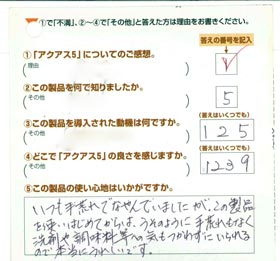 ①で「不満」、②～④で「その他」と答えた方は理由をお書きください。
答えの番号を記入
①「アクアス5」についてのご感想。
(理由
1
②この製品を何で知りましたか。
(その他
5
③この製品を導入された動機は何ですか。
(答えはいくつでも)
(その他
1 2 5
④どこで「アクアス5」の良さを感じますか。
(答えはいくつでも)
(その他
1 2 3 9
⑤この製品の使い心地はいかがですか。
いつも手荒れでなやんでいましたが、この製品
を使いはじめてからは、うそのように手荒れもなく
洗剤や調味料等への気もつかわずにいられる
ので本当にうれしいです。